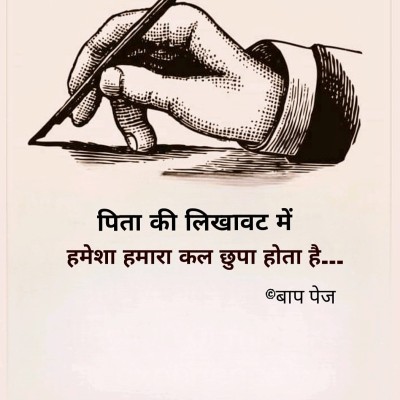 पिता की लिखावट में
हमेशा हमारा कल छुपा होता है...
©बाप पेज